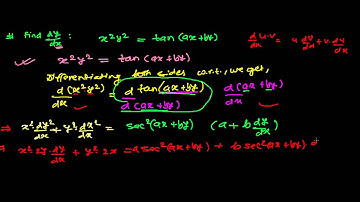 Find dy/dx : x²y² = tan(ax+by)
d/dx u.v = u dv/dx + v du/dx
x²y² = tan(ax+by)
Differentiating both sides w.r.t, we get,
d(x²y²)/dx = d tan(ax+by)/d(ax+by) d(ax+by)/dx
⇒ x² dy²/dx + y² dx²/dx = sec²(ax+by) (a + b dy/dx)
⇒ x² 2y dy/dx + y² 2x = a sec²(ax+by) + b sec²(ax+by) d